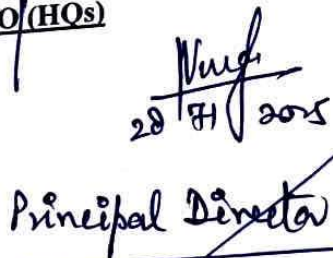 O(HQs)
28 71 2025
Principal Director